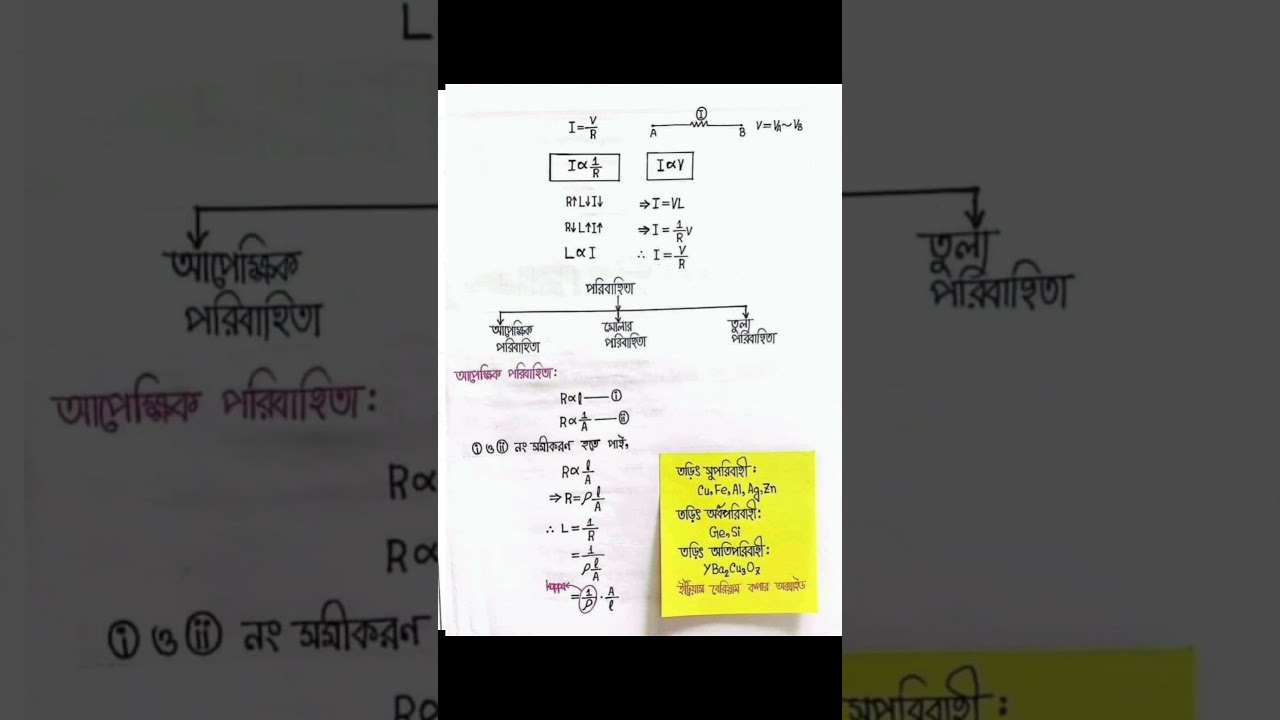 I = V/R
I
A B V = VA ~ VB
I ∝ 1/R I ∝ V
R↑L↓I↓ ⇒ I = VL
R↓L↑I↑ ⇒ I = 1/R V
L ∝ I ∴ I = V/R
পরিবাহিতা
আপেক্ষিক পরিবাহিতা
মোলার পরিবাহিতা
তুল্য পরিবাহিতা
আপেক্ষিক পরিবাহিতা:
R ∝ l — i
R ∝ 1/A — ii
i ও ii নং সমীকরণ হতে পাই,
R ∝ l/A
⇒ R = ρ l/A
∴ L = 1/R
= 1/(ρ l/A)
kappa
= 1/ρ · A/l
তড়িৎ সুপরিবাহী:
Cu, Fe, Al, Ag, Zn
তড়িৎ অর্ধপরিবাহী:
Ge, Si
তড়িৎ অতিপরিবাহী:
YBa₂Cu₃O₇
ইট্রিয়াম বেরিয়াম কপার অক্সাইড
L
আপেক্ষিক
পরিবাহিতা
তুল্য
পরিবাহিতা
আপেক্ষিক পরিবাহিতা:
R∝
R∝
i ও ii নং সমীকরণ
R∝
সুপরিবাহী: